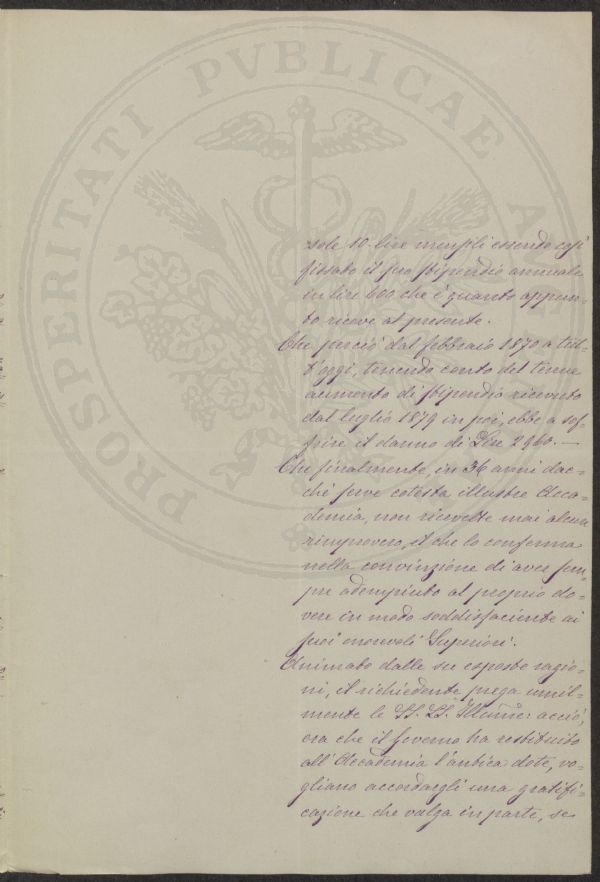 PROSPERITATI PVBLICAE AVGENDAE
sole 10 lire mensili essendo così
fissato il suo stipendio annuale
in lire 600 che è quanto appun-
to riceve al presente.
Che perciò dal febbraio 1870 a tut-
t'oggi, tenendo conto del tenue
aumento di stipendio ricevuto
dal luglio 1879 in poi, ebbe a sof-
frire il danno di Lire 2960. —
Che finalmente, in 36 anni dac-
chè serve cotesta illustre Acca-
demia, non ricevette mai alcun
rimprovero, il che lo conferma
nella convinzione di aver sem-
pre adempiuto al proprio do-
vere in modo soddisfaciente ai
suoi onorevoli Superiori.
Animato dalle su esposte ragio-
ni, il richiedente prega umil-
mente le SS. LL. Illume: acciò,
ora che il Governo ha restituito
all'Accademia l'antica dote, vo-
gliano accordargli una gratifi-
cazione che valga in parte, se